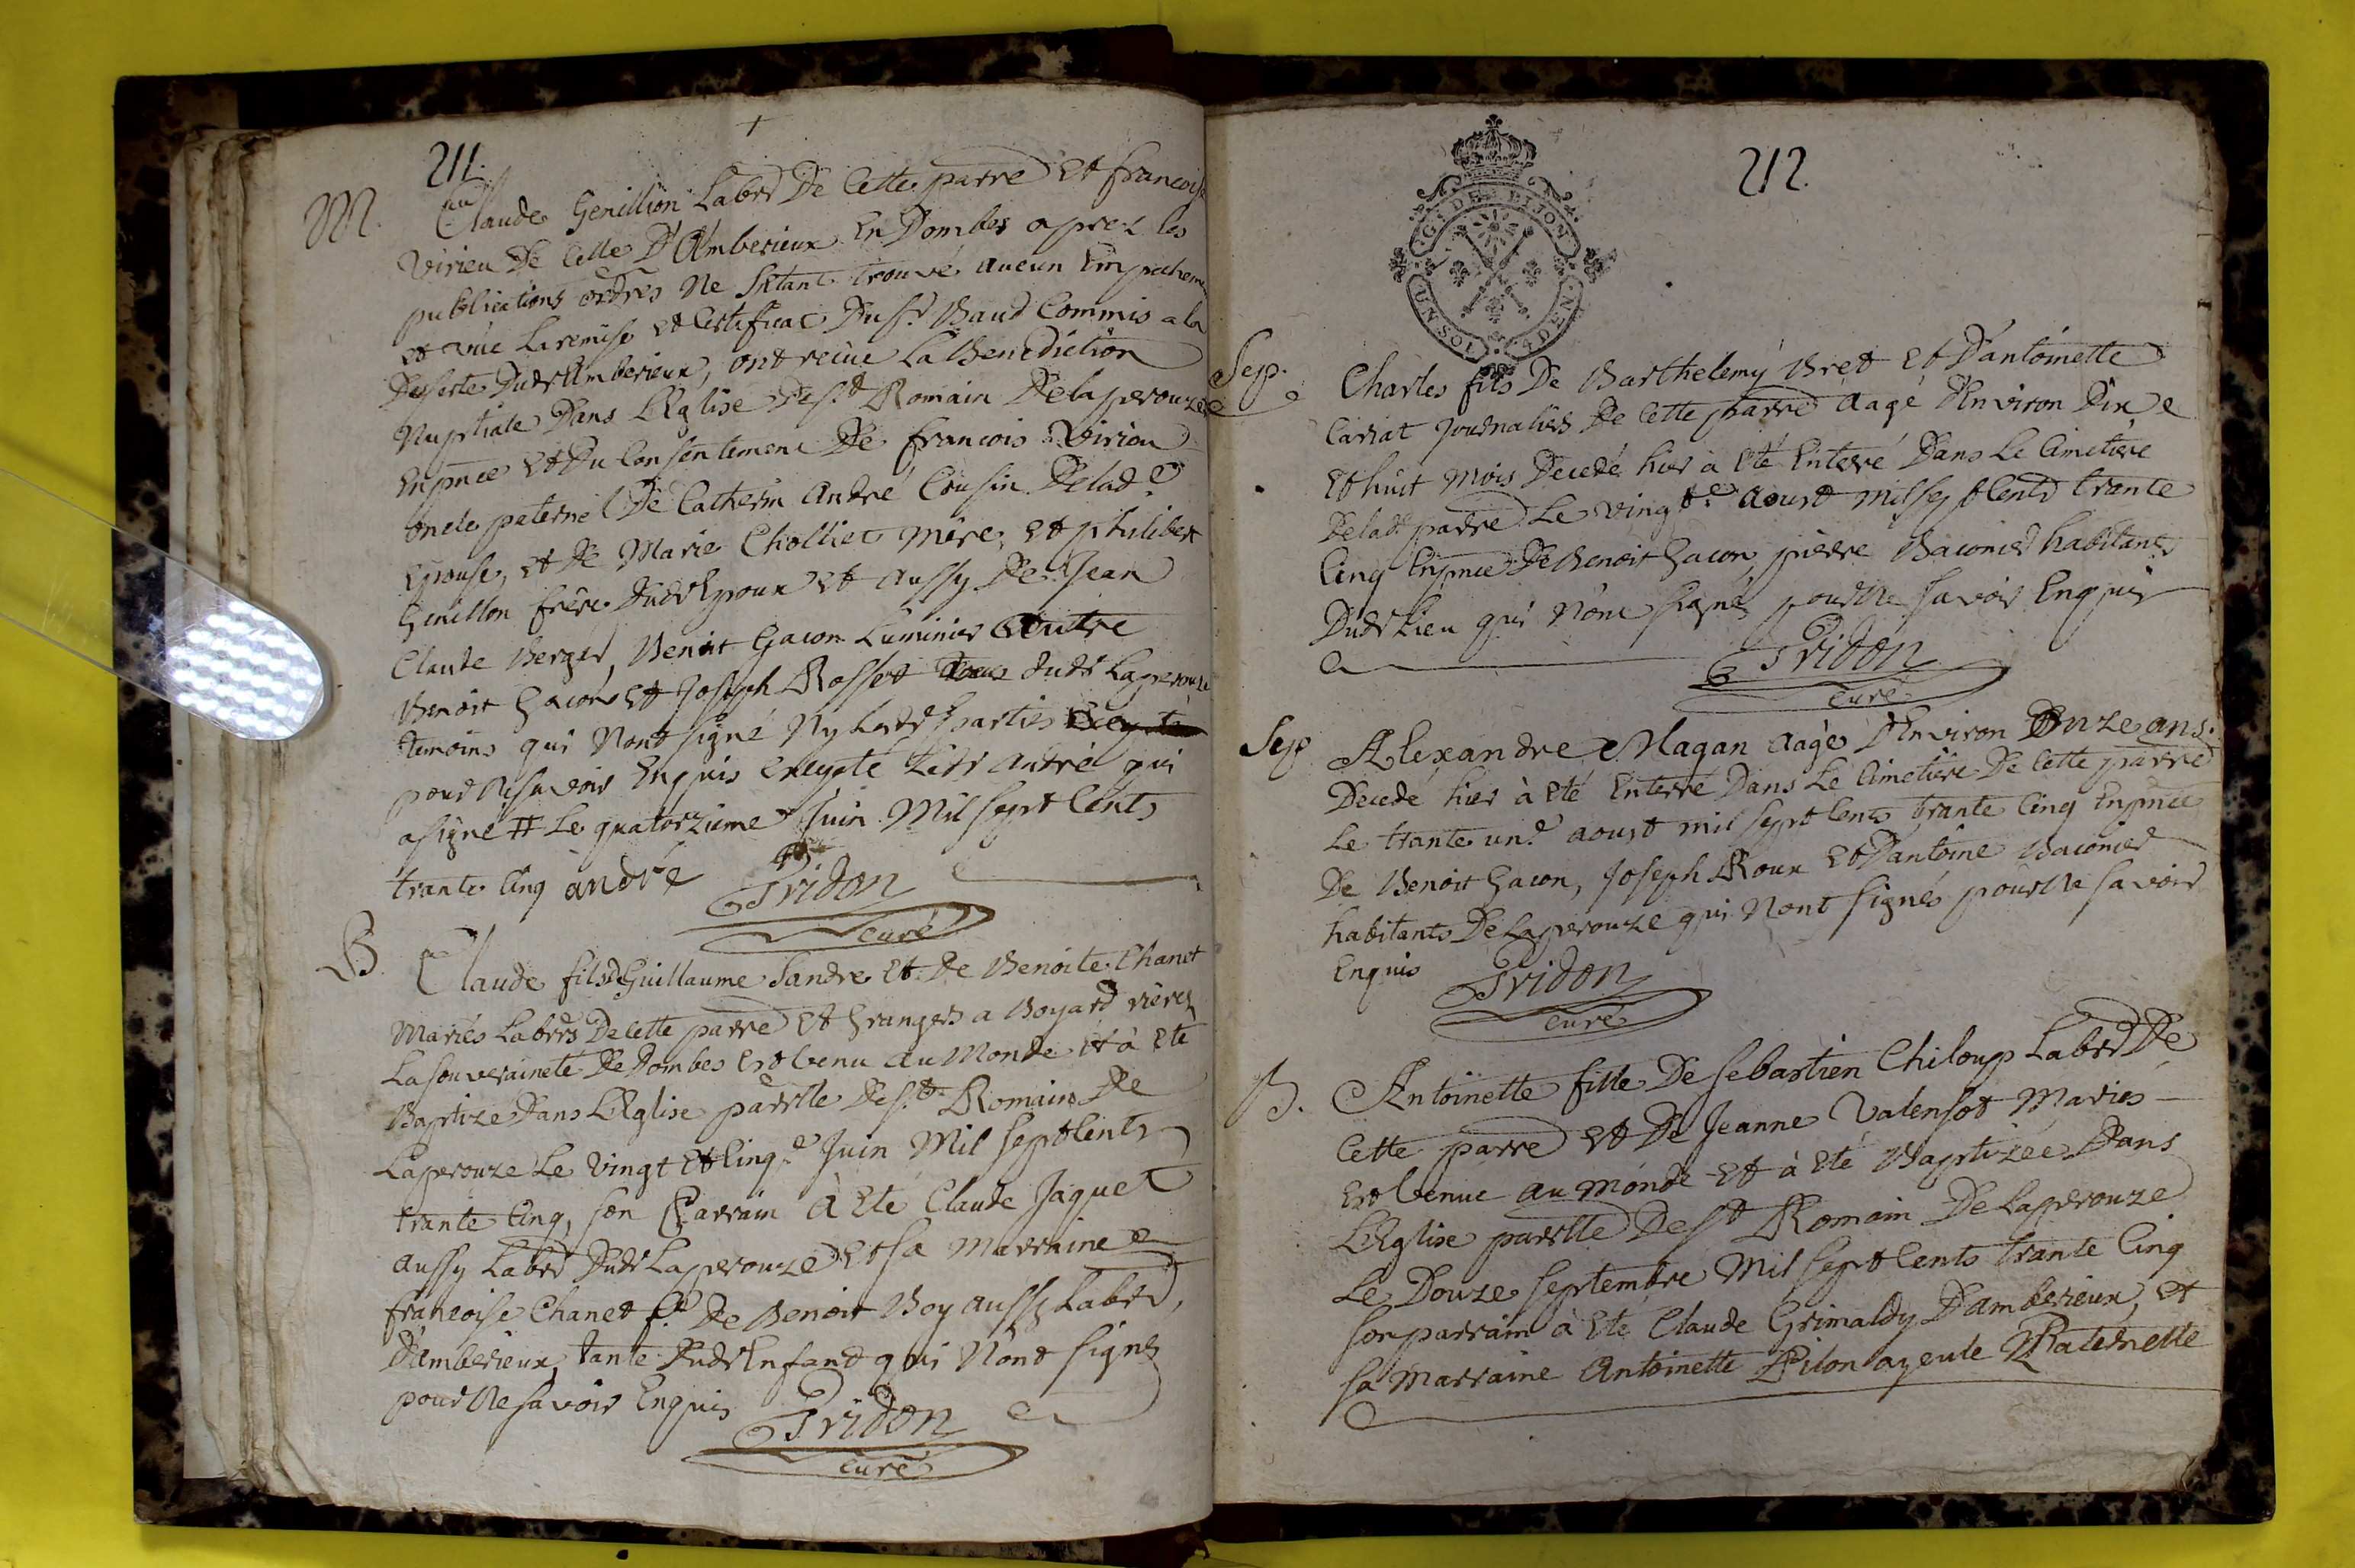 211.
M.
Claude Genillion Labr De Cette parre Et francoise
Virieu De Celle D'Amberieux En Dombes apres les
publications ordres Ne S'etant trouvé aucun Empechem
et vüe La remise et Certificat Du Sr Baud Commis a la
Deserte Dudt Amberieux, ont recüe La Benediction
Nuptiale Dans L'Eglise De St Romain Delaperouze
En pnce Et Du Consentement De francois Virieu
oncle paternel De Catherin André Cousin Delade
Epouse, et de Marie Cholliet Mere, et philibert
Genillon frere Dudt Epoux et aussy De Jean
Claude Berger, Benoit Gacon Luminier autre
Benoit Gacon et Joseph Rosset tous dudt Laperouze
temoins qui Nont signé Ny Lesdt parties
pour Ne savoir Enquis Excepté Ledt André qui
a signé # Le quatorzieme Juin Mil Sept Cents
trante Cinq andré
Pridon
curé
B.
Claude fils de Guillaume Sandre et De Benoite Chanet
Mariés Labrs De Cette parre et Grangers a Boyard rieres
La Souveraineté De Dombes est venu au Monde et à eté
Baptizé Dans L'Eglise parrlle De St Romain De
Laperouze Le vingt et Cinqe Juin Mil Sept Cents
trante Cinq, son Parrain à eté Claude Jaquet
aussy Labr Dudt Laperouze et sa Marraine
francoise Chanet fe De Benoit Boy aussy Labr,
D'Amberieux, tante Dudt Enfant qui Nont signé
pour Ne savoir Enquis Pridon
curé
212.
G. DE DIJON
UN SOL 4 DEN
Sep.
Charles fils De Barthelemy Bret et D'antoinette
Carrat Journaliers De Cette parre aagé D'Environ Dix
Et huit Mois Decedé hier à eté Enterré Dans Le Cimetiere
De ladt parre Le vingte aoust mil Sept Cents trante
Cinq En pnce De Benoit Gacon, pierre Baconier habitants
Dudt Lieu qui N'ont signé pour Ne savoir Enquis
Pridon
curé
Sep
Alexandre Magan aagé D'Environ Onze ans.
Decedé hier à eté Enterré Dans Le Cimetiere De Cette parre
Le trante une aoust mil Sept Cents trante Cinq En pnce
De Benoit Gacon, Joseph Roux et D'antoine Baconier
habitants De Laperouze qui Nont signés pour Ne savoir
Enquis Pridon
curé
B.
Antoinette fille De Sebastien Chiloup Labr De
Cette parre et De Jeanne Valensot Mariés
est venue au Monde et à eté Baptizée Dans
L'Eglise parrlle De St Romain De Laperouze
Le Douze Septembre Mil Sept Cents trante Cinq
son parrain à eté Claude Grimaldy D'amberieux, et
sa Marraine Antoinette Pilon ayeule Paternelle